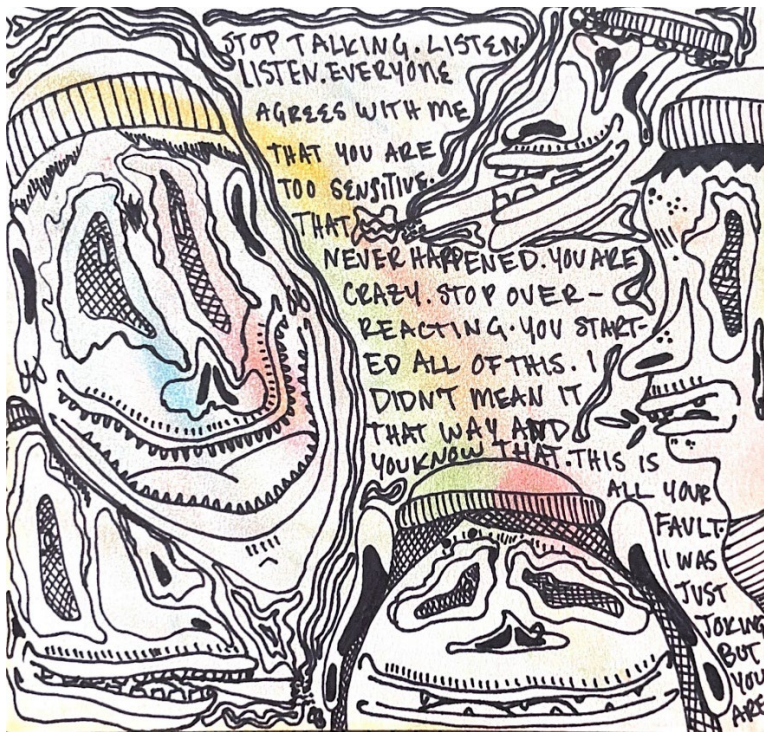 STOP TALKING. LISTEN.
LISTEN. EVERYONE
AGREES WITH ME
THAT YOU ARE
TOO SENSITIVE.
THAT
NEVER HAPPENED. YOU ARE
CRAZY. STOP OVER-
REACTING. YOU START-
ED ALL OF THIS. I
DIDN'T MEAN IT
THAT WAY AND
YOU KNOW THAT. THIS IS
ALL YOUR
FAULT.
I WAS
JUST
JOKING
BUT
YOU
ARE